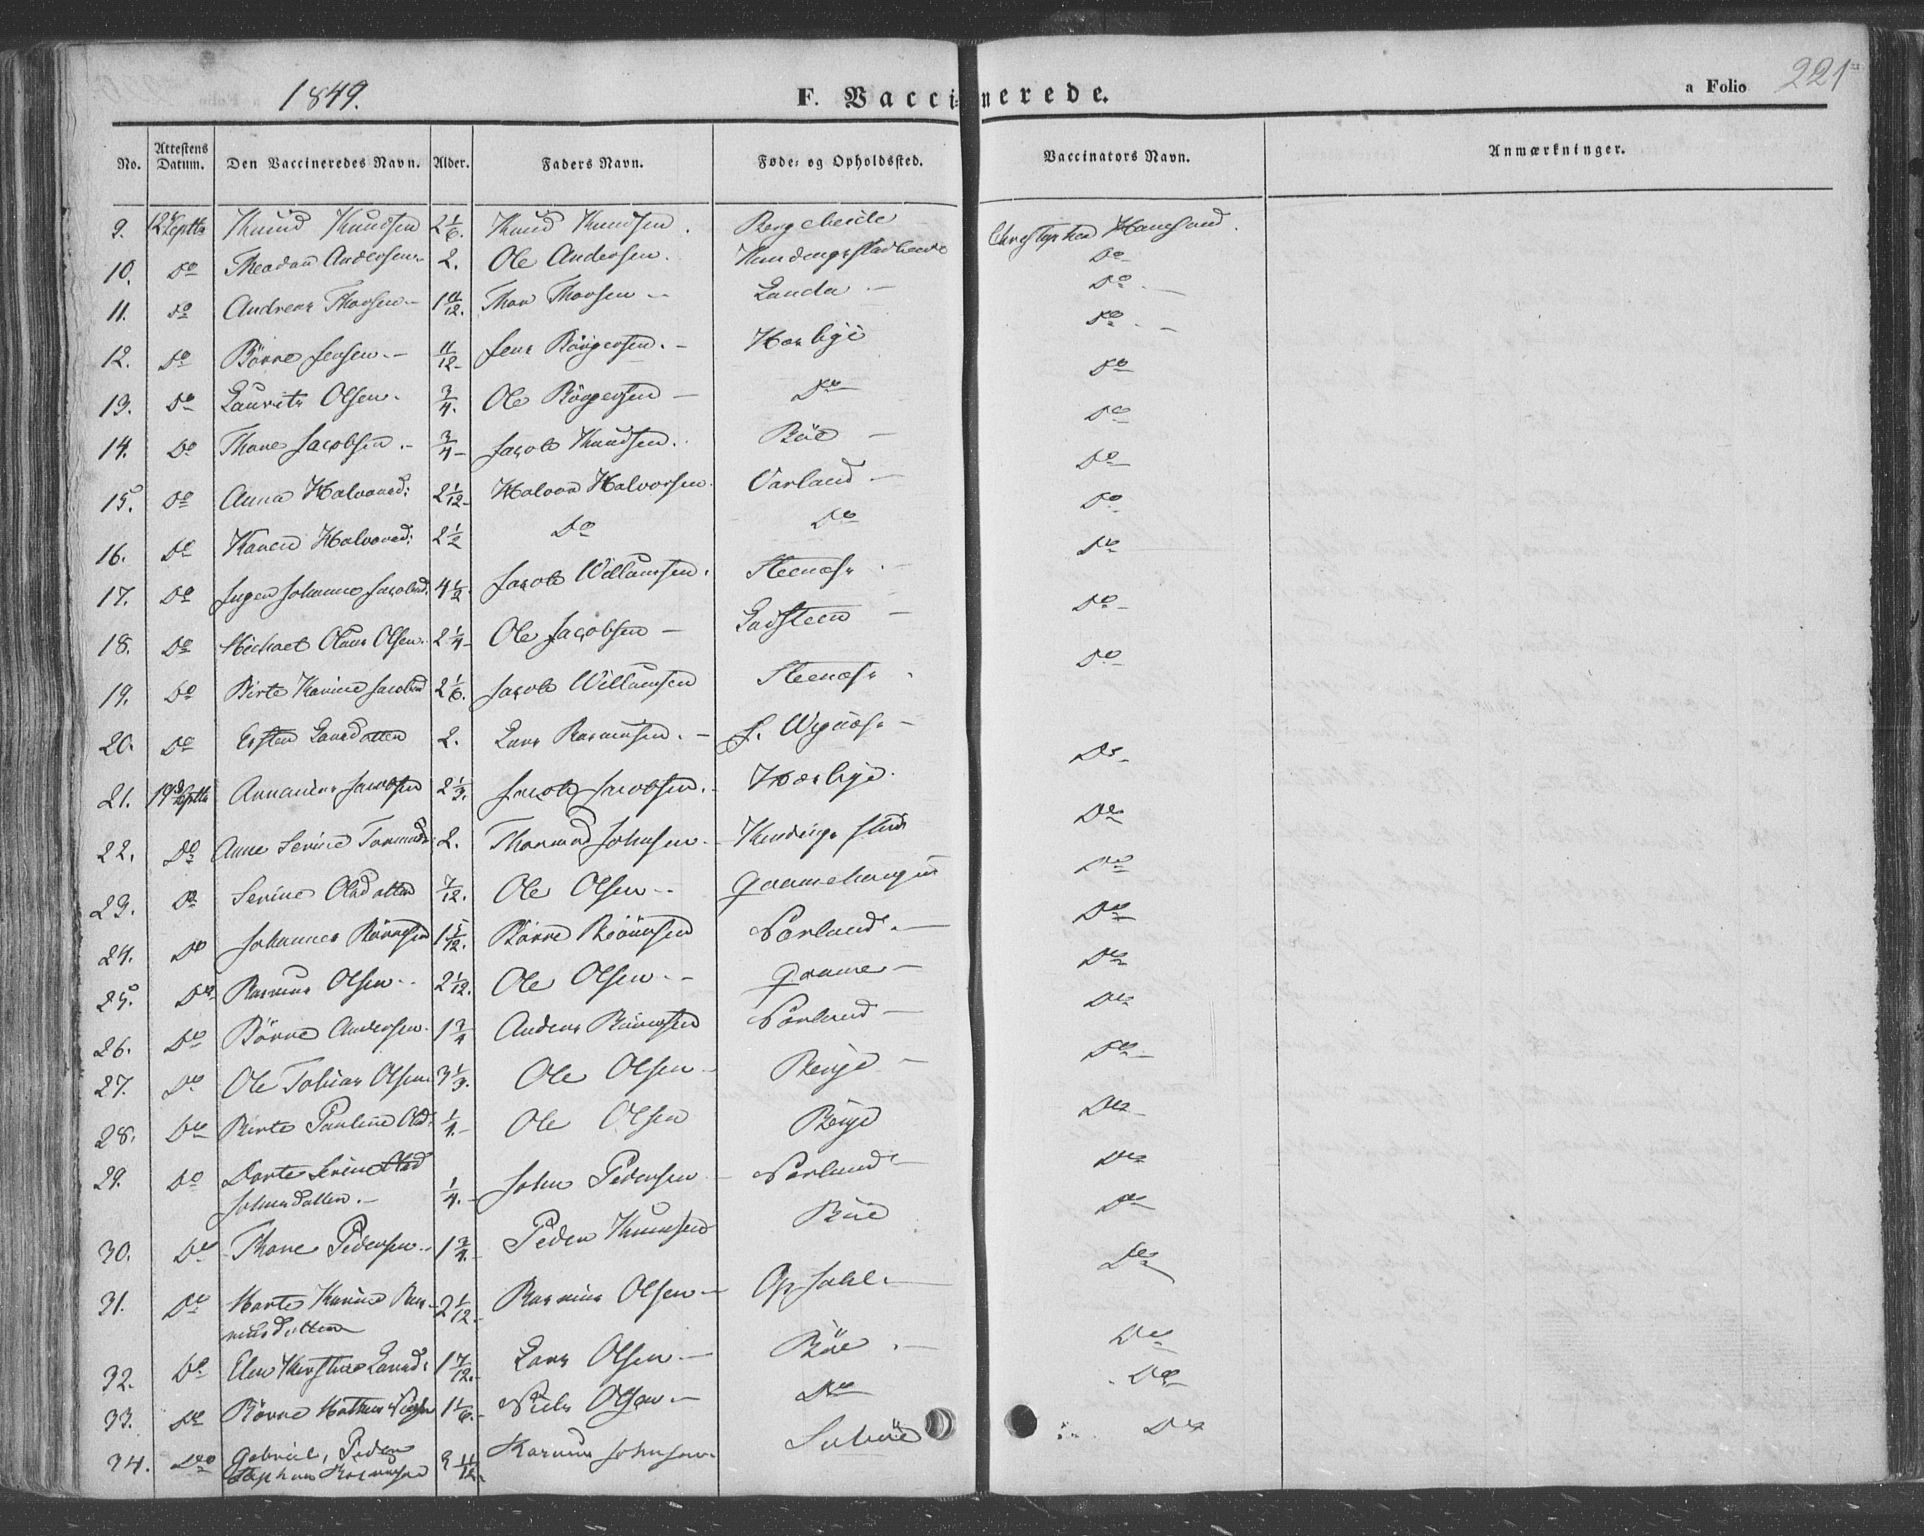 1849.
F. Vaccinerede.
a Folio 221
No. Attestens Datum. Den Vaccineredes Navn. Alder. Faders Navn. Føde- og Opholdssted. Vaccinators Navn. Anmærkninger.
9. 18 Septbr Knud Knudsen 2 1/6. Knud Knudsen. Christopher Hanesand.
10. Do Theodor Andersen 2. Ole Andersen. Do
11. Do Andreas Thorsen 1 11/12. Thor Thorsen Landa Do
12. Do Börre Jensen. 11/12 Jens Börgersen. Haabye Do
13. Do Laurits Olsen. 3/4. Ole Börgersen Do Do
14. Do Thore Jacobsen. 3/4 Jacob Knudsen. Böe Do
15. Do Anna Halvorsd: 2 1/12 Halvor Halvorsen Varland Do
16. Do Karen Halvorsd: 2 1/2 Do Do Do
17. Do Inger Johanne Jacobsd. 4 1/2 Jacob Willumsen. Steenæs Do
18. Do Michael Olaus Olsen. 2 1/4 Ole Jacobsen Ladsteen Do
19. Do Birte Karine Jacobsd 2 1/6. Jacob Willumsen Steenæs Do
20. Do Larsdatter 2. Lars Rasmusen. Wignæs
21. 19 Septbr Ananias Jacobsen 2 1/3. Jacob Jacobsen. Haabye. Do
22. Do Anne Serine 2. Thormod Johnsen Do
23. Do Serine Olsdatter 7/12. Ole Olsen Do
24. Do Johannes Börresen 1 5/12. Börre Sörland. Do
25. Do Rasmus Olsen 2 1/12. Ole Olsen Qvame Do
26. Do Börre Andersen. 1 3/4 Anders Sörland Do
27. Do Ole Tobias Olsen 3 1/3. Ole Olsen Berge Do
28. Do Birte Pauline Olsd 1/4. Ole Olsen Berge Do
29. Do Dorte Serine Olsd
Johnsdatter. 1/4. John Pedersen Sörland Do
30. Do Thore Pedersen 1 3/4. Peder Knudsen Böe Do
31. Do Marte Karine Ras-
musdatter 2 1/12. Rasmus Olsen Opsahl. Do
32. Do Elen Kirstine Larsd: 1 7/12. Lars Olsen Böe. Do
33. Do Börre Mathias 1 1/6. Niels Olsen Do Do
34. Do Gabriel, Peder
Stephan Rasmusen 3 11/12. Rasmus Johnsen Do